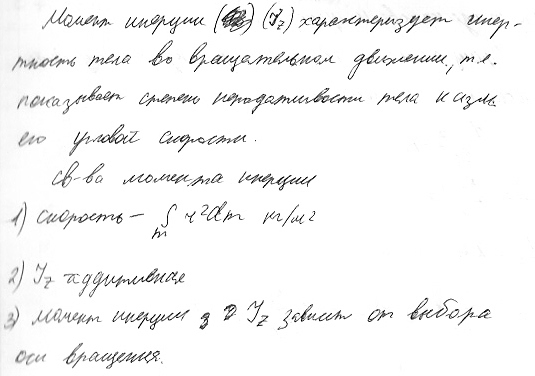 Момент инерции (J_z) характеризует инер-
тность тела во вращательном движении, т.е.
показывает степень неподатливости тела к изм.
его угловой скорости.
св-ва момента инерции
1) скорость – ∫_m r²dm кг/м²
2) J_z аддитивная
3) момент инерции J_z зависит от выбора
оси вращения.